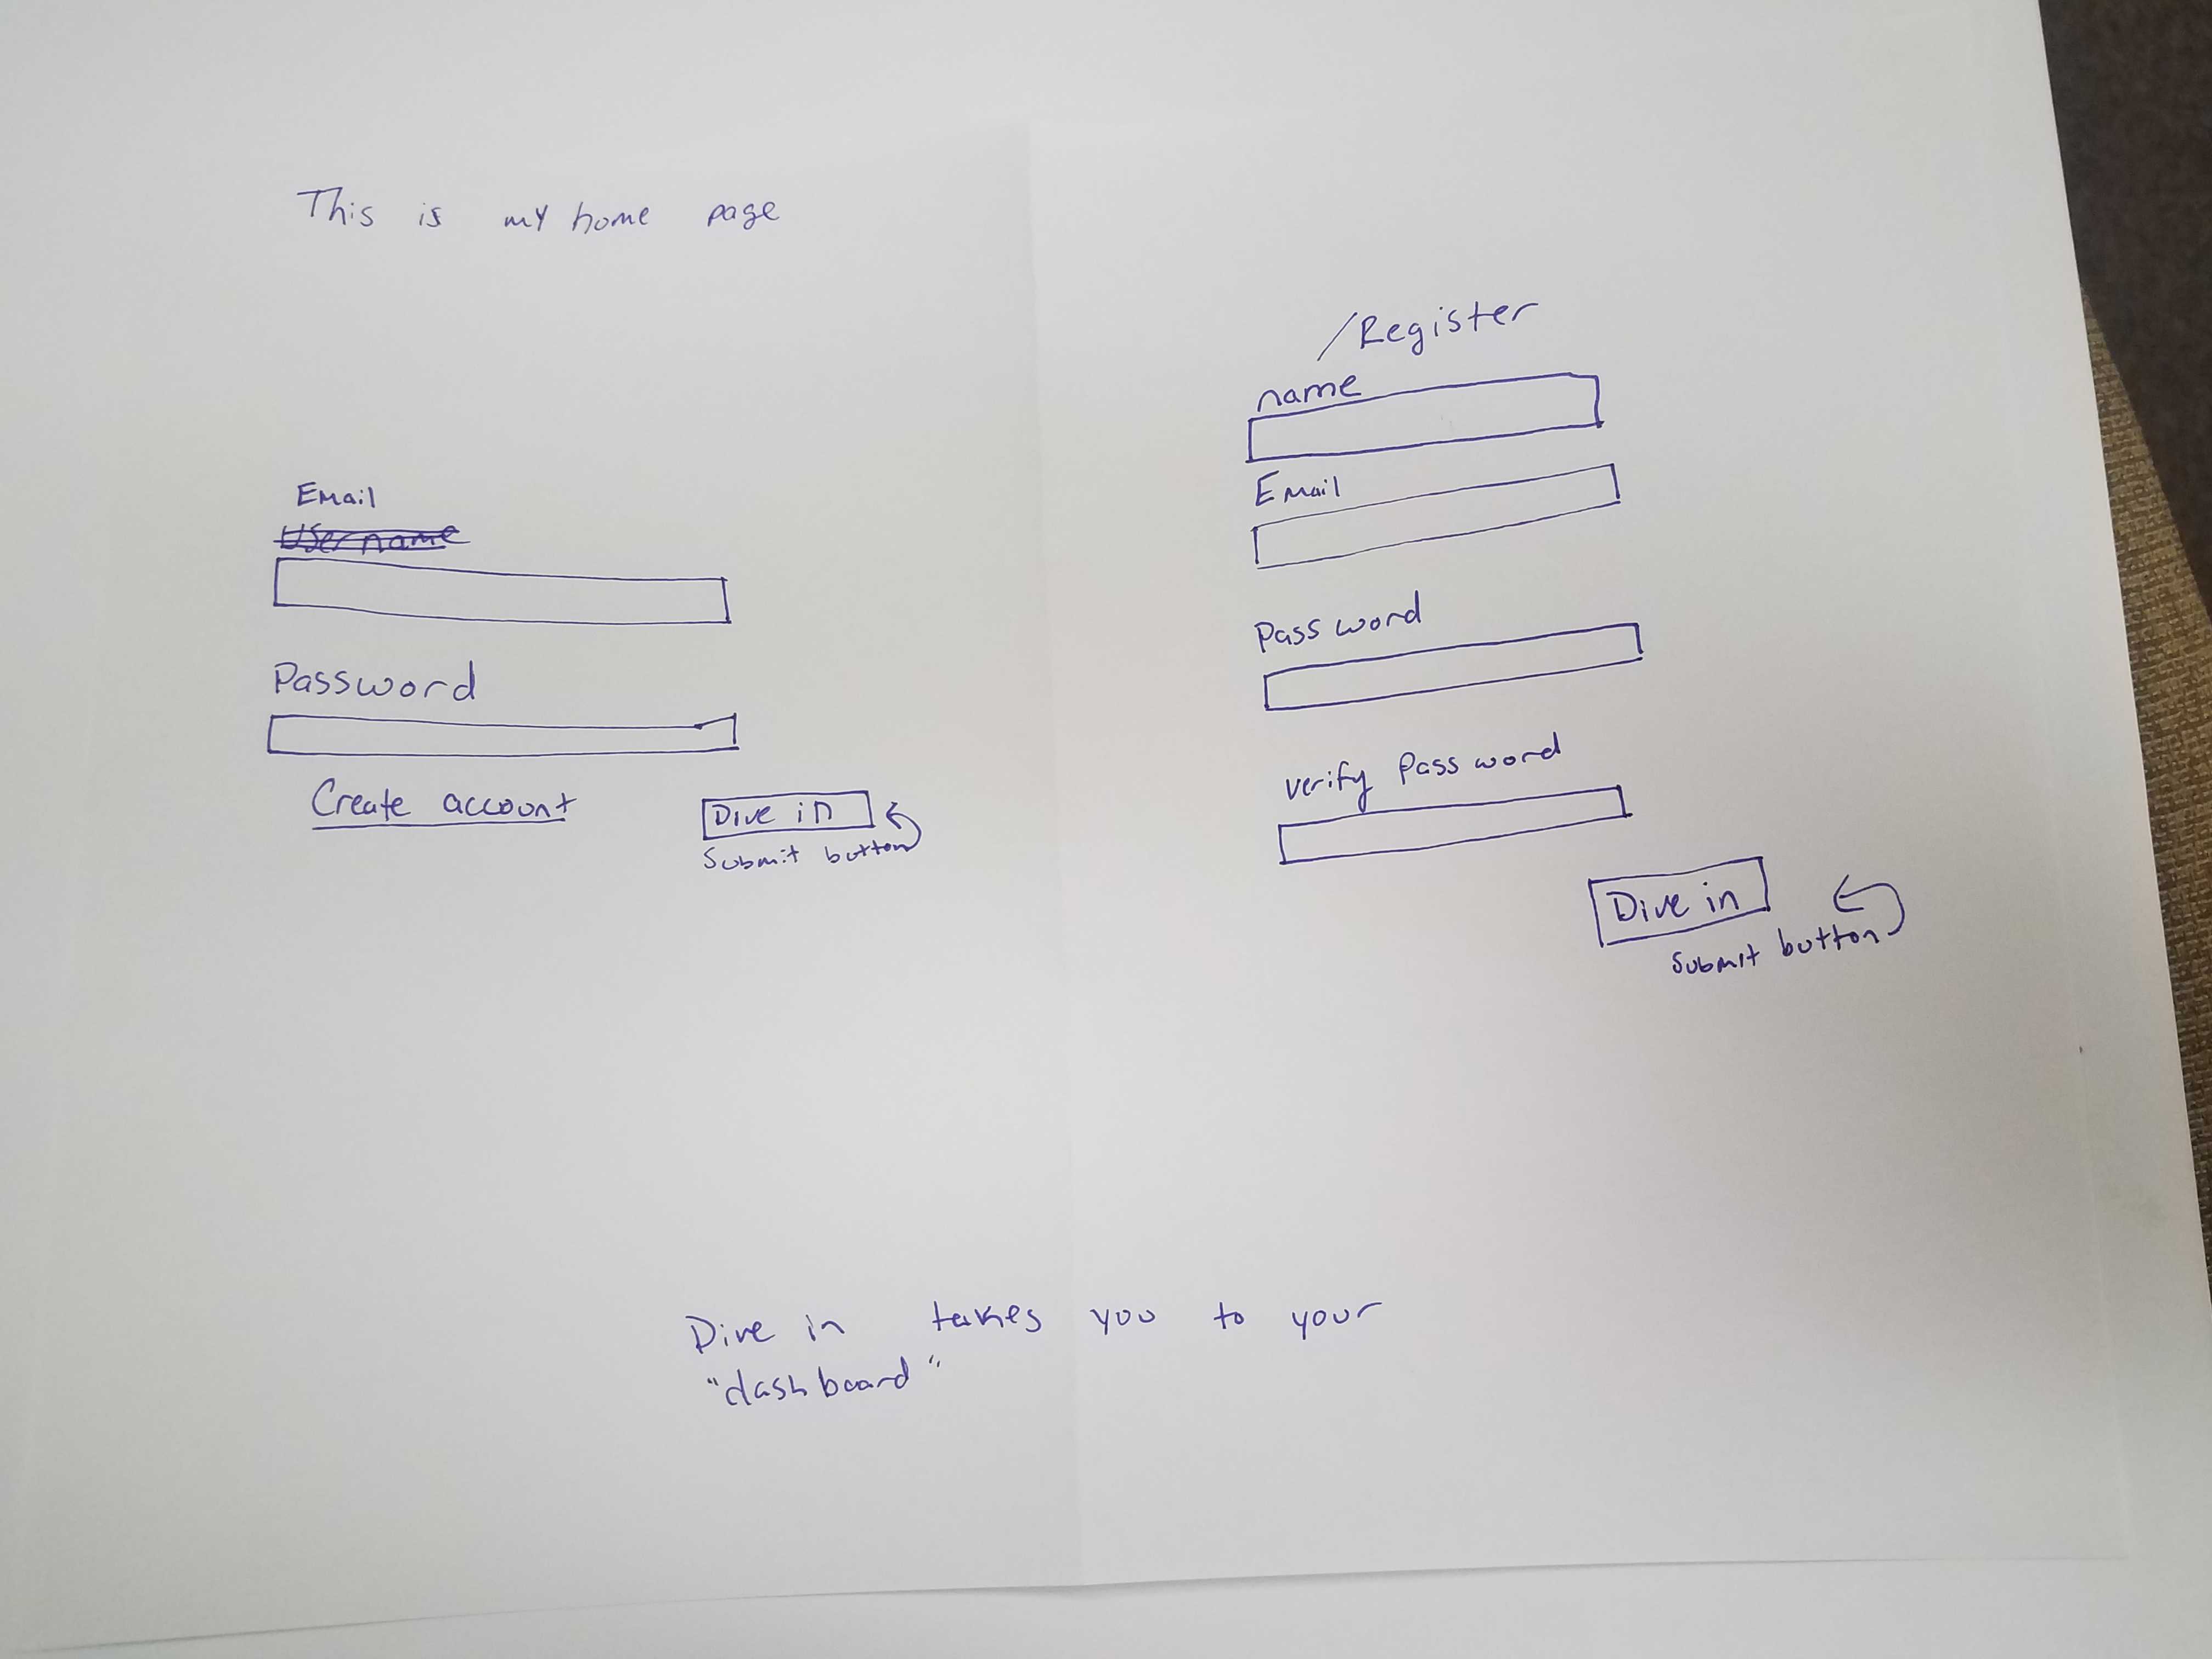 This is my home page
Email
Username
Password
Create account
Dive in
Submit button
/Register
name
Email
Password
verify Password
Dive in
Submit button
Dive in takes you to your
"dashboard"